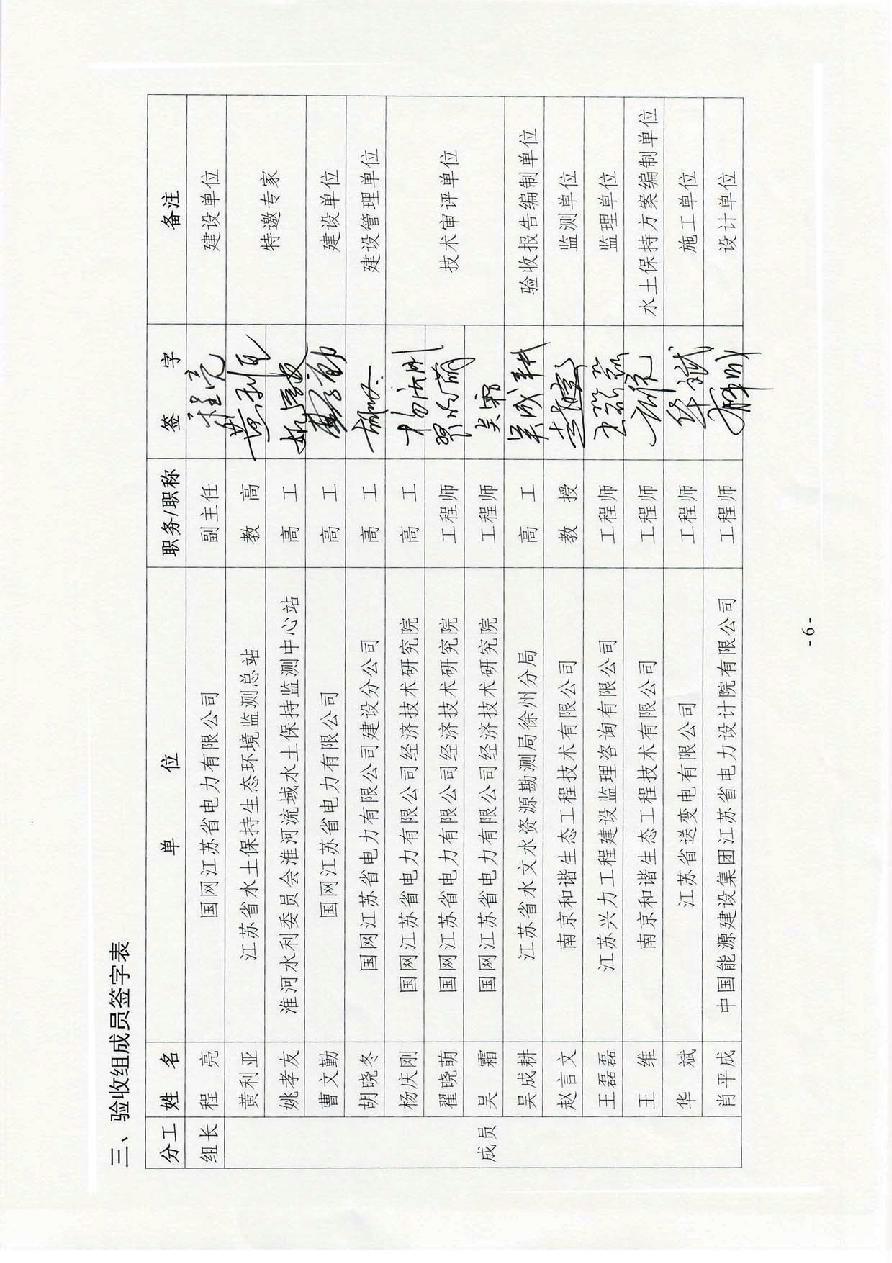 三、验收组成员签字表
分工 姓 名 单 位 职务/职称 签 字 备注
组长 程 亮 国网江苏省电力有限公司 副主任 程亮 建设单位
成员 黄利亚 江苏省水土保持生态环境监测总站 教 高 黄利亚 特邀专家
姚孝友 淮河水利委员会淮河流域水土保持监测中心站 高 工 姚孝友
曹文勤 国网江苏省电力有限公司 高 工 建设单位
胡晓冬 国网江苏省电力有限公司建设分公司 高 工 建设管理单位
杨庆刚 国网江苏省电力有限公司经济技术研究院 高 工 杨庆刚 技术审评单位
翟晓萌 国网江苏省电力有限公司经济技术研究院 工程师 翟晓萌
吴 霜 国网江苏省电力有限公司经济技术研究院 工程师 吴霜
吴成耕 江苏省水文水资源勘测局徐州分局 高 工 吴成耕 验收报告编制单位
赵言文 南京和谐生态工程技术有限公司 教 授 监测单位
王磊磊 江苏兴力工程建设监理咨询有限公司 工程师 王磊磊 监理单位
王 维 南京和谐生态工程技术有限公司 工程师 水土保持方案编制单位
华 斌 江苏省送变电有限公司 工程师 华斌 施工单位
肖平成 中国能源建设集团江苏省电力设计院有限公司 工程师 设计单位
-6-